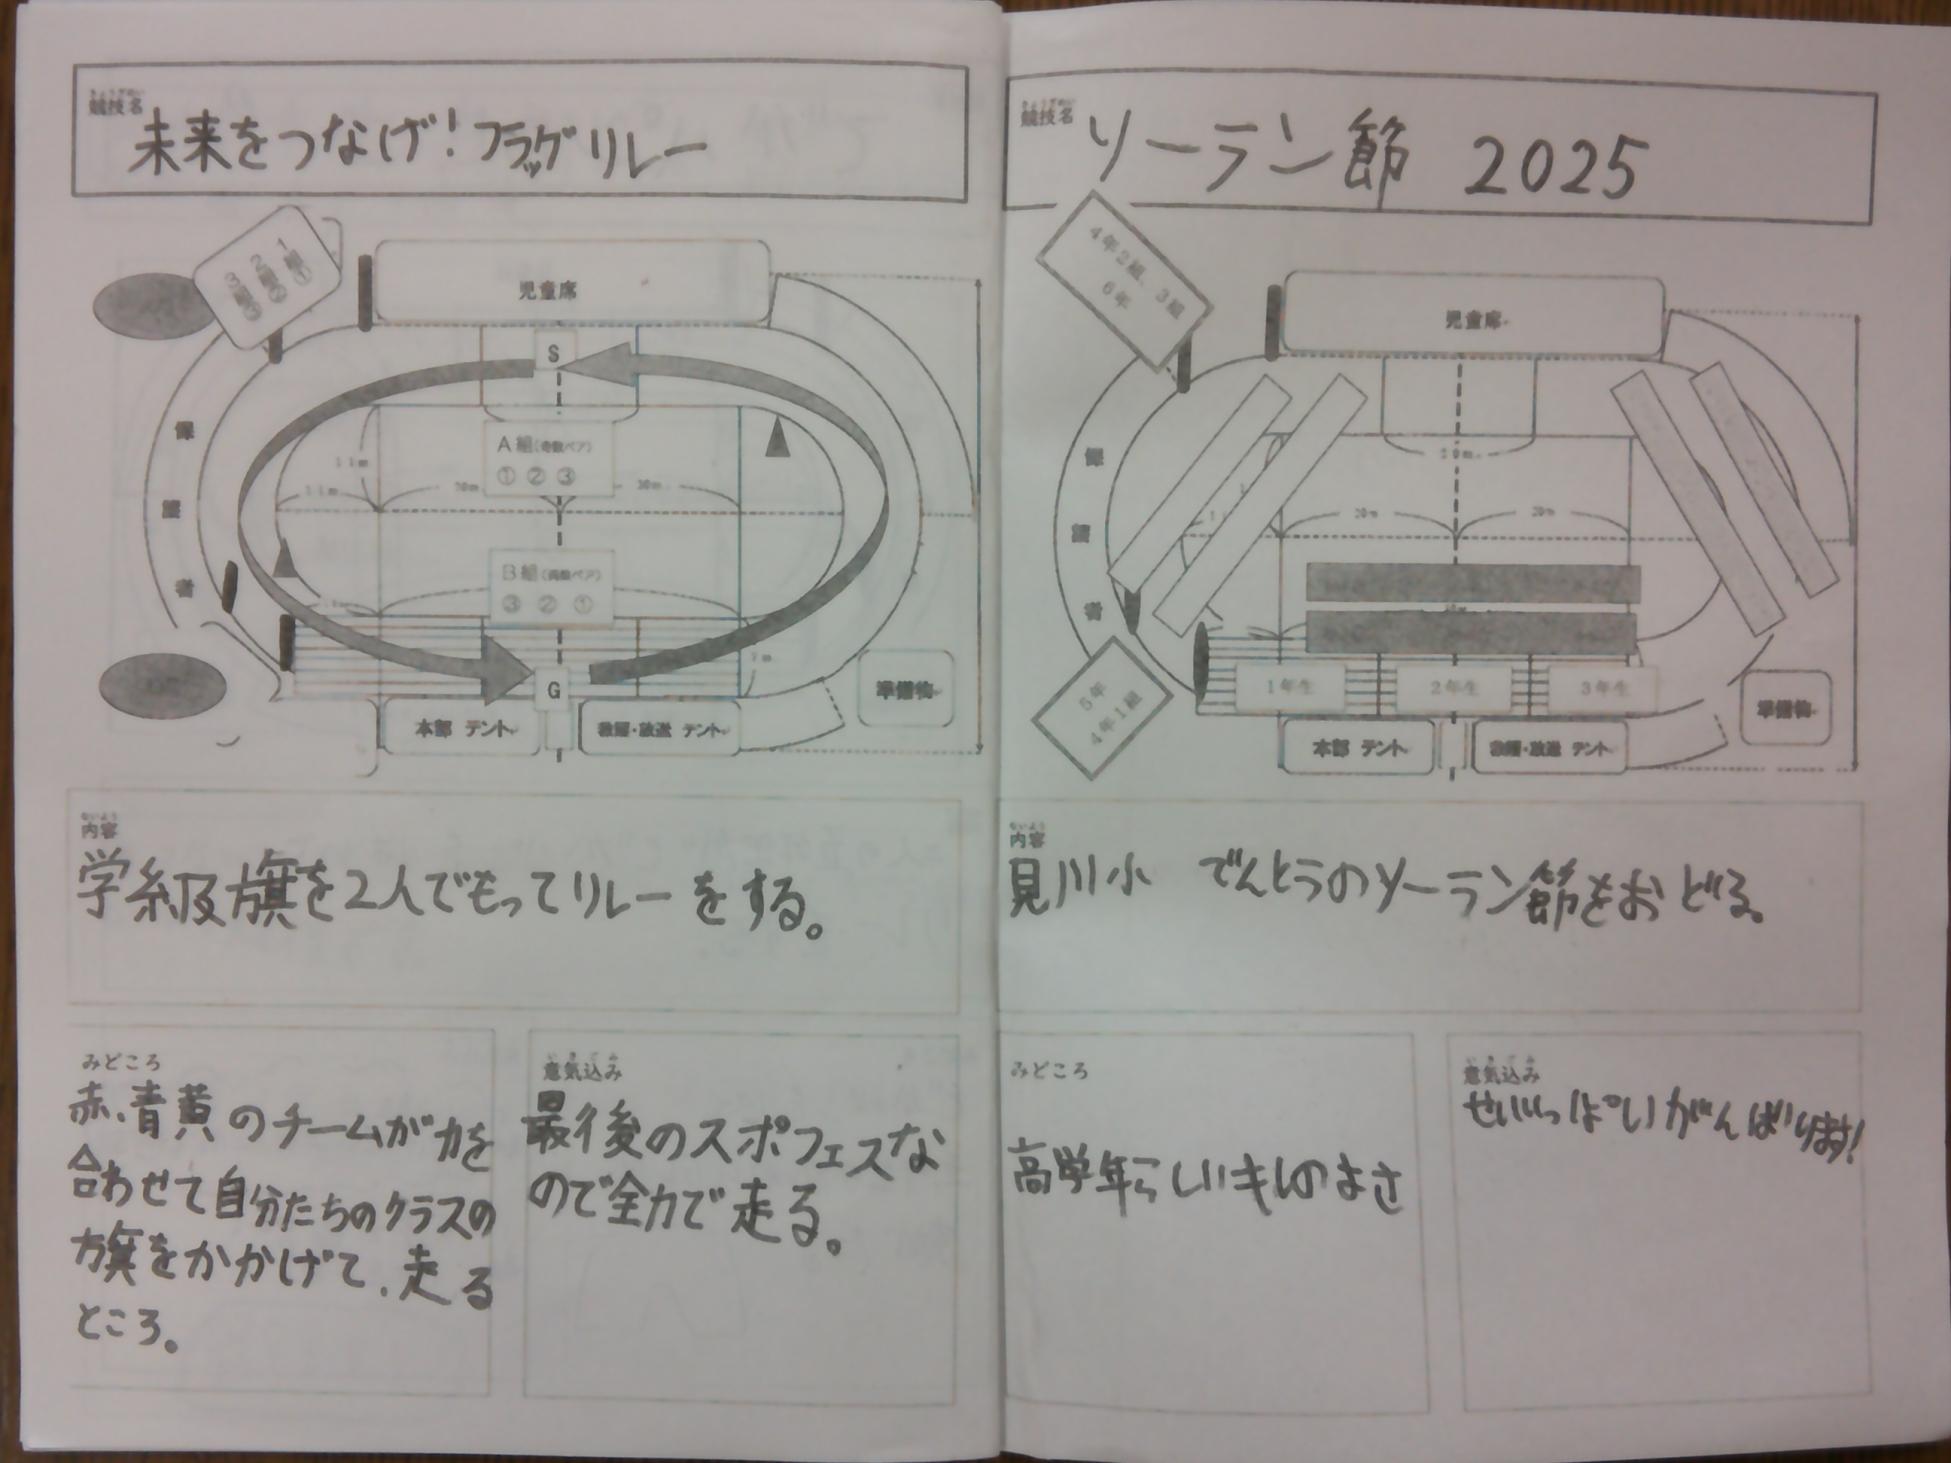 競技名
未来をつなげ!フラッグリレー
1組①
2組②
3組③
児童席
S
保
護
者
A組(奇数ペア)
① ② ③
11m
11m
20m
20m
B組(偶数ペア)
③ ② ①
G
準備物
本部 テント
救護・放送 テント
内容
学級旗を2人でもってリレーをする。
みどころ
赤、青黄のチームが力を
合わせて自分たちのクラスの
旗をかかげて、走る
ところ。
意気込み
最後のスポフェスな
ので全力で走る。
競技名
ソーラン節 2025
4年2組、3組
6年
児童席
保
護
者
20m
20m
1年生
2年生
3年生
5年
4年1組
準備物
本部 テント
救護・放送 テント
内容
見川小 でんとうのソーラン節をおどる。
みどころ
高学年らしいキレのよさ
意気込み
せいいっぱいがんばります!